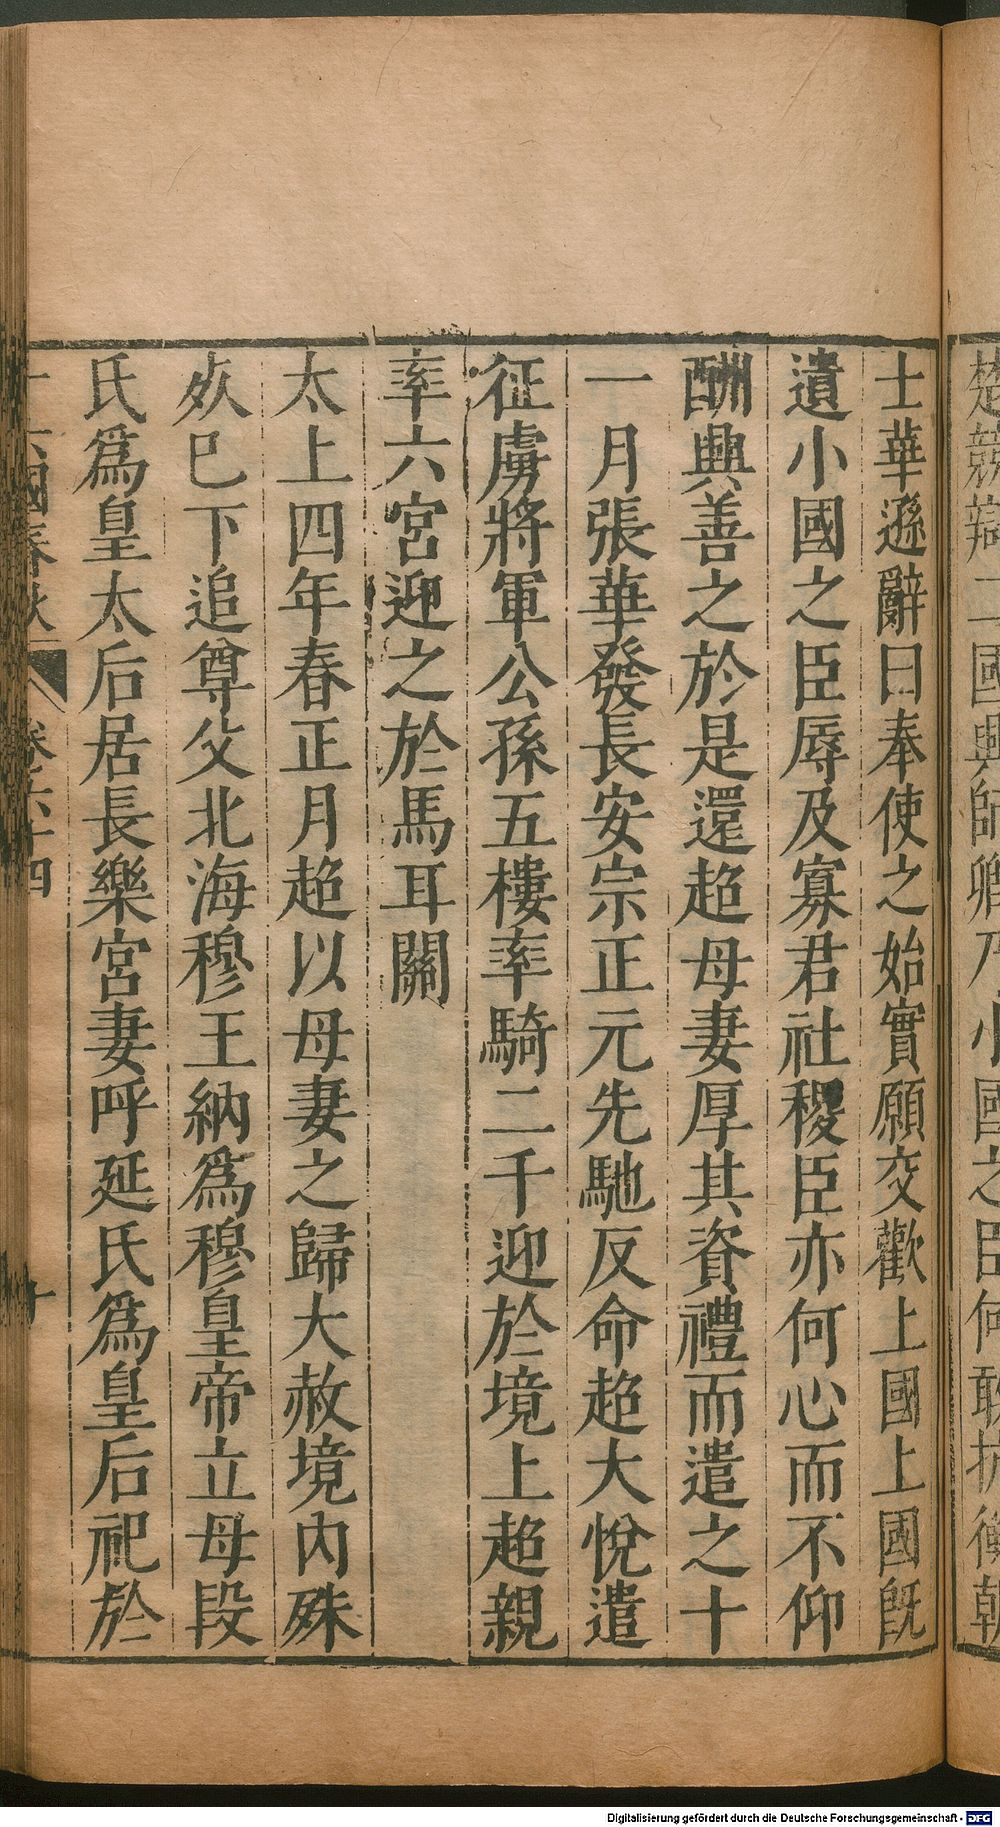 楚競辯二國興師卿乃小國之臣何敢抗衡朝
士華遜辭曰奉使之始實願交歡上國上國既
遺小國之臣辱及寡君社稷臣亦何心而不仰
酬興善之於是還超母妻厚其資禮而遣之十
一月張華發長安宗正元先馳反命超大悅遣
征虜將軍公孫五樓率騎二千迎於境上超親
率六宮迎之於馬耳關
太上四年春正月超以母妻之歸大赦境內殊
死巳下追尊父北海穆王納爲穆皇帝立母段
氏爲皇太后居長樂宮妻呼延氏爲皇后祀於
十六國春秋 卷六十四 十
Digitalisierung gefördert durch die Deutsche Forschungsgemeinschaft - DFG